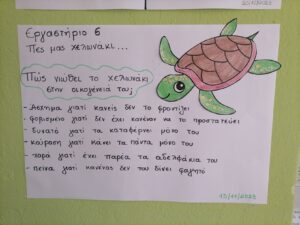 Εργαστήριο 6
Πες μας χελωνάκι...
Πώς νιώθει το χελωνάκι
στην οικογένειά του;
- Άσχημα γιατί κανείς δεν το φροντίζει
- φοβισμένο γιατί δεν έχει κανέναν να το προστατεύει
- δυνατό γιατί τα καταφέρνει μόνο του
- κούραση γιατί κάνει τα πάντα μόνο του
- χαρά γιατί έχει παρέα τα αδελφάκια του
- πείνα γιατί κανένας δεν του δίνει φαγητό
15/11/2023